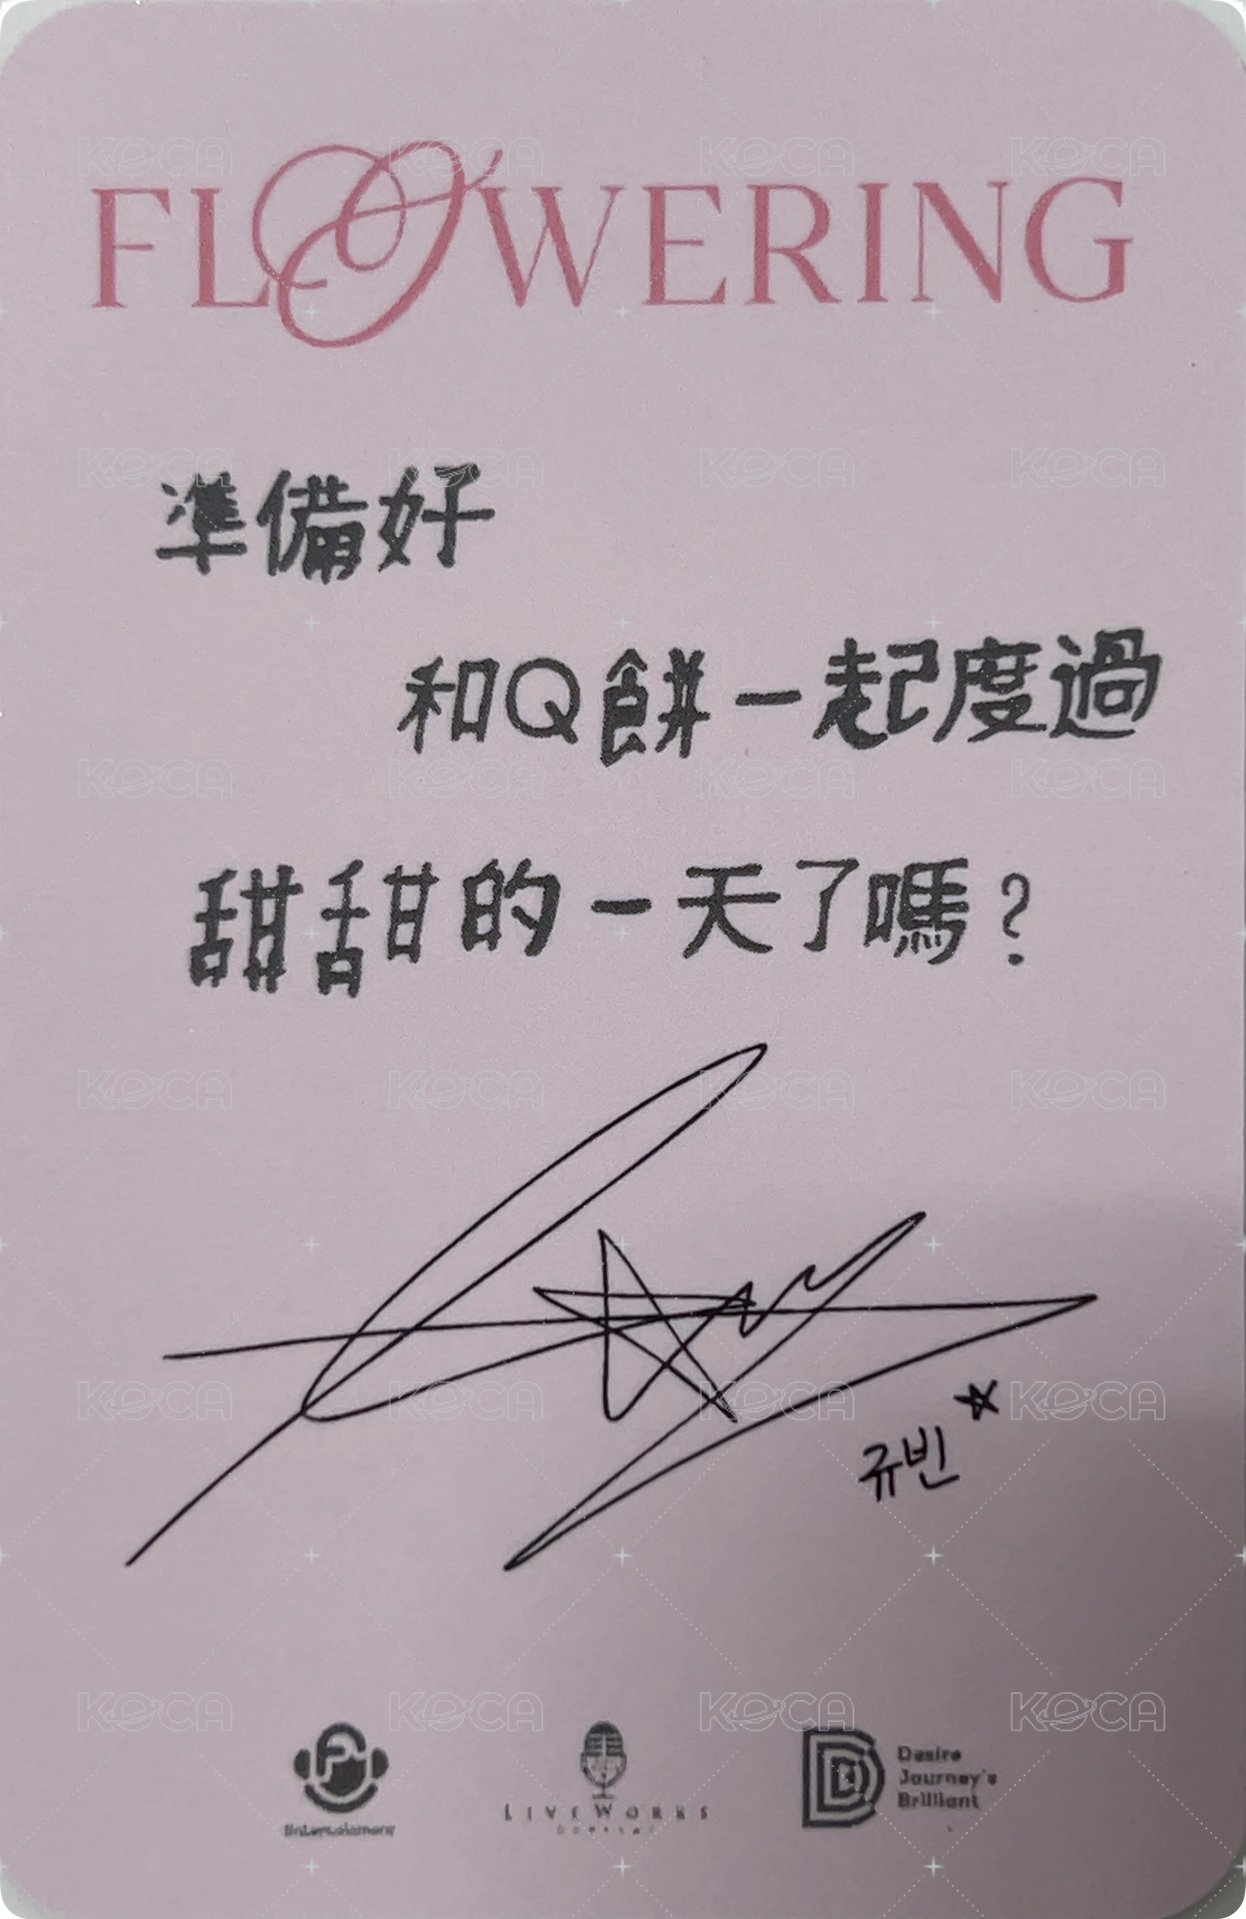 FLOWERING
準備好
和Q餅一起度過
甜甜的一天了嗎？
규빈
Entertainment
LIVEWORKS
Desire
Journey's
Brilliant
KOCA